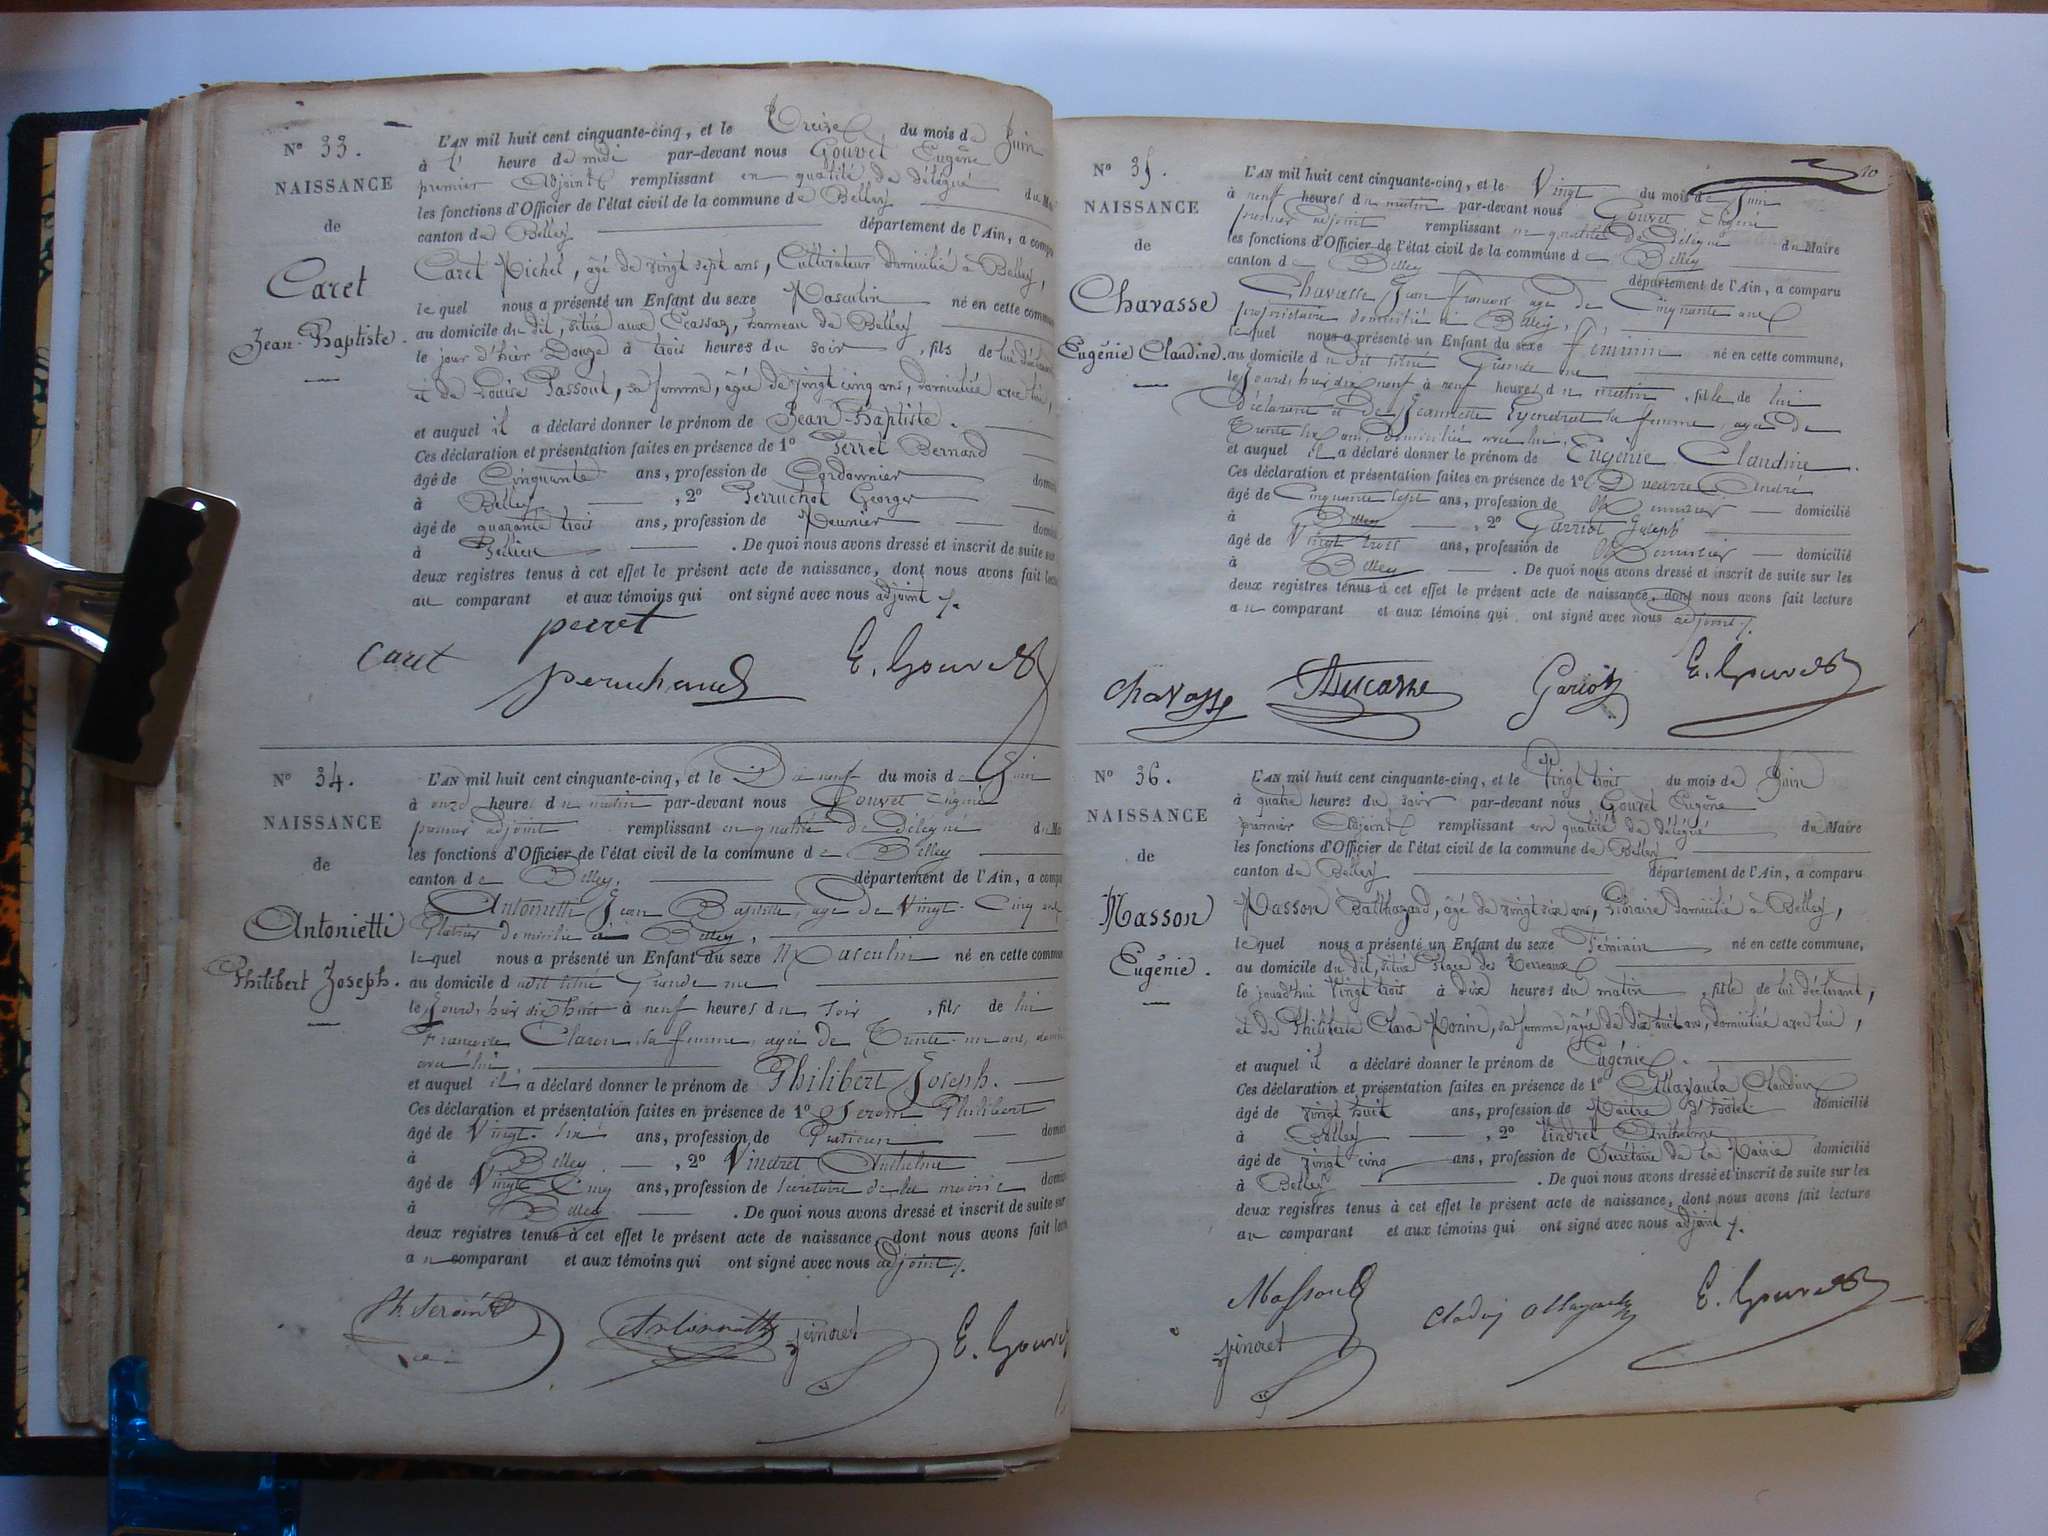 N° 33.
NAISSANCE
de
Caret
Jean-Baptiste.
L'AN mil huit cent cinquante-cinq, et le Treize du mois de Juin
à l' heure de midi par-devant nous Gouvet Eugène
premier Adjoint remplissant en qualité de délégué du
les fonctions d'Officier de l'état civil de la commune de Belley
canton de Belley département de l'Ain, a
Caret Michel, âgé de vingt sept ans, Cultivateur domicilié à Belley,
lequel nous a présenté un Enfant du sexe Masculin né en cette
au domicile du dit, situé aux Ecassaz, hameau de Belley
le jour d'hier Douze à trois heures du soir, fils de lui
et de Louise Passout, sa femme, âgée de vingt cinq ans, domiciliée avec lui,
et auquel il a déclaré donner le prénom de Jean-Baptiste.
Ces déclaration et présentation faites en présence de 1° Perret Bernard
âgé de Cinquante ans, profession de Cordonnier
à Belley, 2° Perruchot George
âgé de quarante trois ans, profession de Meunier
à . De quoi nous avons dressé et inscrit de suite sur
deux registres tenus à cet effet le présent acte de naissance, dont nous avons fait
au comparant et aux témoins qui ont signé avec nous adjoint ./.
perret
caret E. Gouvet
N° 34.
NAISSANCE
de
Antonietti
Philibert Joseph.
L'AN mil huit cent cinquante-cinq, et le Dix neuf du mois de Juin
à onze heures du matin par-devant nous Gouvet Eugène
premier adjoint remplissant en qualité de Délégué du
les fonctions d'Officier de l'état civil de la commune de Belley
canton de Belley, département de l'Ain, a
Antonietti Jean Baptiste, agé de Vingt-Cinq ans
Platrier domicilié à Belley,
lequel nous a présenté un Enfant du sexe Masculin né en cette
au domicile dudit situé Grande rue
le jourd'hier dix huit à neuf heures du soir, fils de lui
Françoise Claron sa femme, agée de Trente-un ans,
avec lui,
et auquel il a déclaré donner le prénom de Philibert Joseph.
Ces déclaration et présentation faites en présence de 1° Serom Philibert
âgé de Vingt-six ans, profession de Praticien
à Belley, 2° Vindret Anthelme
âgé de Vingt Cinq ans, profession de secrétaire de la mairie
à Belley. De quoi nous avons dressé et inscrit de suite sur
deux registres tenus à cet effet le présent acte de naissance, dont nous avons fait
au comparant et aux témoins qui ont signé avec nous adjoint ./.
Antonietti Vindret E. Gouvet
N° 35.
NAISSANCE
de
Chavasse
Eugénie Claudine.
L'AN mil huit cent cinquante-cinq, et le Vingt du mois de Juin
à neuf heures du matin par-devant nous Gouvet Eugène
premier adjoint remplissant en qualité de Délégué du Maire
les fonctions d'Officier de l'état civil de la commune de Belley
canton de Belley département de l'Ain, a comparu
Chavasse Jean François agé de Cinquante ans
propriétaire domicilié à Belley,
lequel nous a présenté un Enfant du sexe féminin né en cette commune,
au domicile du dit situé Grande rue
le jourd'hier dix neuf à neuf heures du matin, fille de lui
Déclarant et de Jeannette sa femme, agée de
Trente six ans, domiciliée avec lui,
et auquel il a déclaré donner le prénom de Eugénie Claudine.
Ces déclaration et présentation faites en présence de 1° André
âgé de Cinquante sept ans, profession de Menuisier domicilié
à Belley, 2° Garriot Joseph
âgé de Vingt trois ans, profession de Menuisier domicilié
à Belley. De quoi nous avons dressé et inscrit de suite sur les
deux registres tenus à cet effet le présent acte de naissance, dont nous avons fait lecture
au comparant et aux témoins qui ont signé avec nous adjoint ./.
Chavasse Gariot E. Gouvet
N° 36.
NAISSANCE
de
Masson
Eugénie.
L'AN mil huit cent cinquante-cinq, et le Vingt trois du mois de Juin
à quatre heures du soir par-devant nous Gouvet Eugène
premier Adjoint remplissant en qualité de délégué du Maire
les fonctions d'Officier de l'état civil de la commune de Belley
canton de Belley département de l'Ain, a comparu
Masson Balthazard, âgé de vingt six ans, libraire domicilié à Belley,
lequel nous a présenté un Enfant du sexe Féminin né en cette commune,
au domicile du dit, situé Place des Terreaux
le jourd'hui Vingt trois à dix heures du matin, fille de lui déclarant,
et de Philiberte Clara Monin, sa femme, âgée de dix huit ans, domiciliée avec lui,
et auquel il a déclaré donner le prénom de Eugénie.
Ces déclaration et présentation faites en présence de 1° Claudius
âgé de vingt huit ans, profession de Maître d'hôtel domicilié
à Belley, 2° Vindret Anthelme
âgé de vingt cinq ans, profession de Secrétaire de la Mairie domicilié
à Belley. De quoi nous avons dressé et inscrit de suite sur les
deux registres tenus à cet effet le présent acte de naissance, dont nous avons fait lecture
au comparant et aux témoins qui ont signé avec nous adjoint ./.
Masson E. Gouvet
Vindret